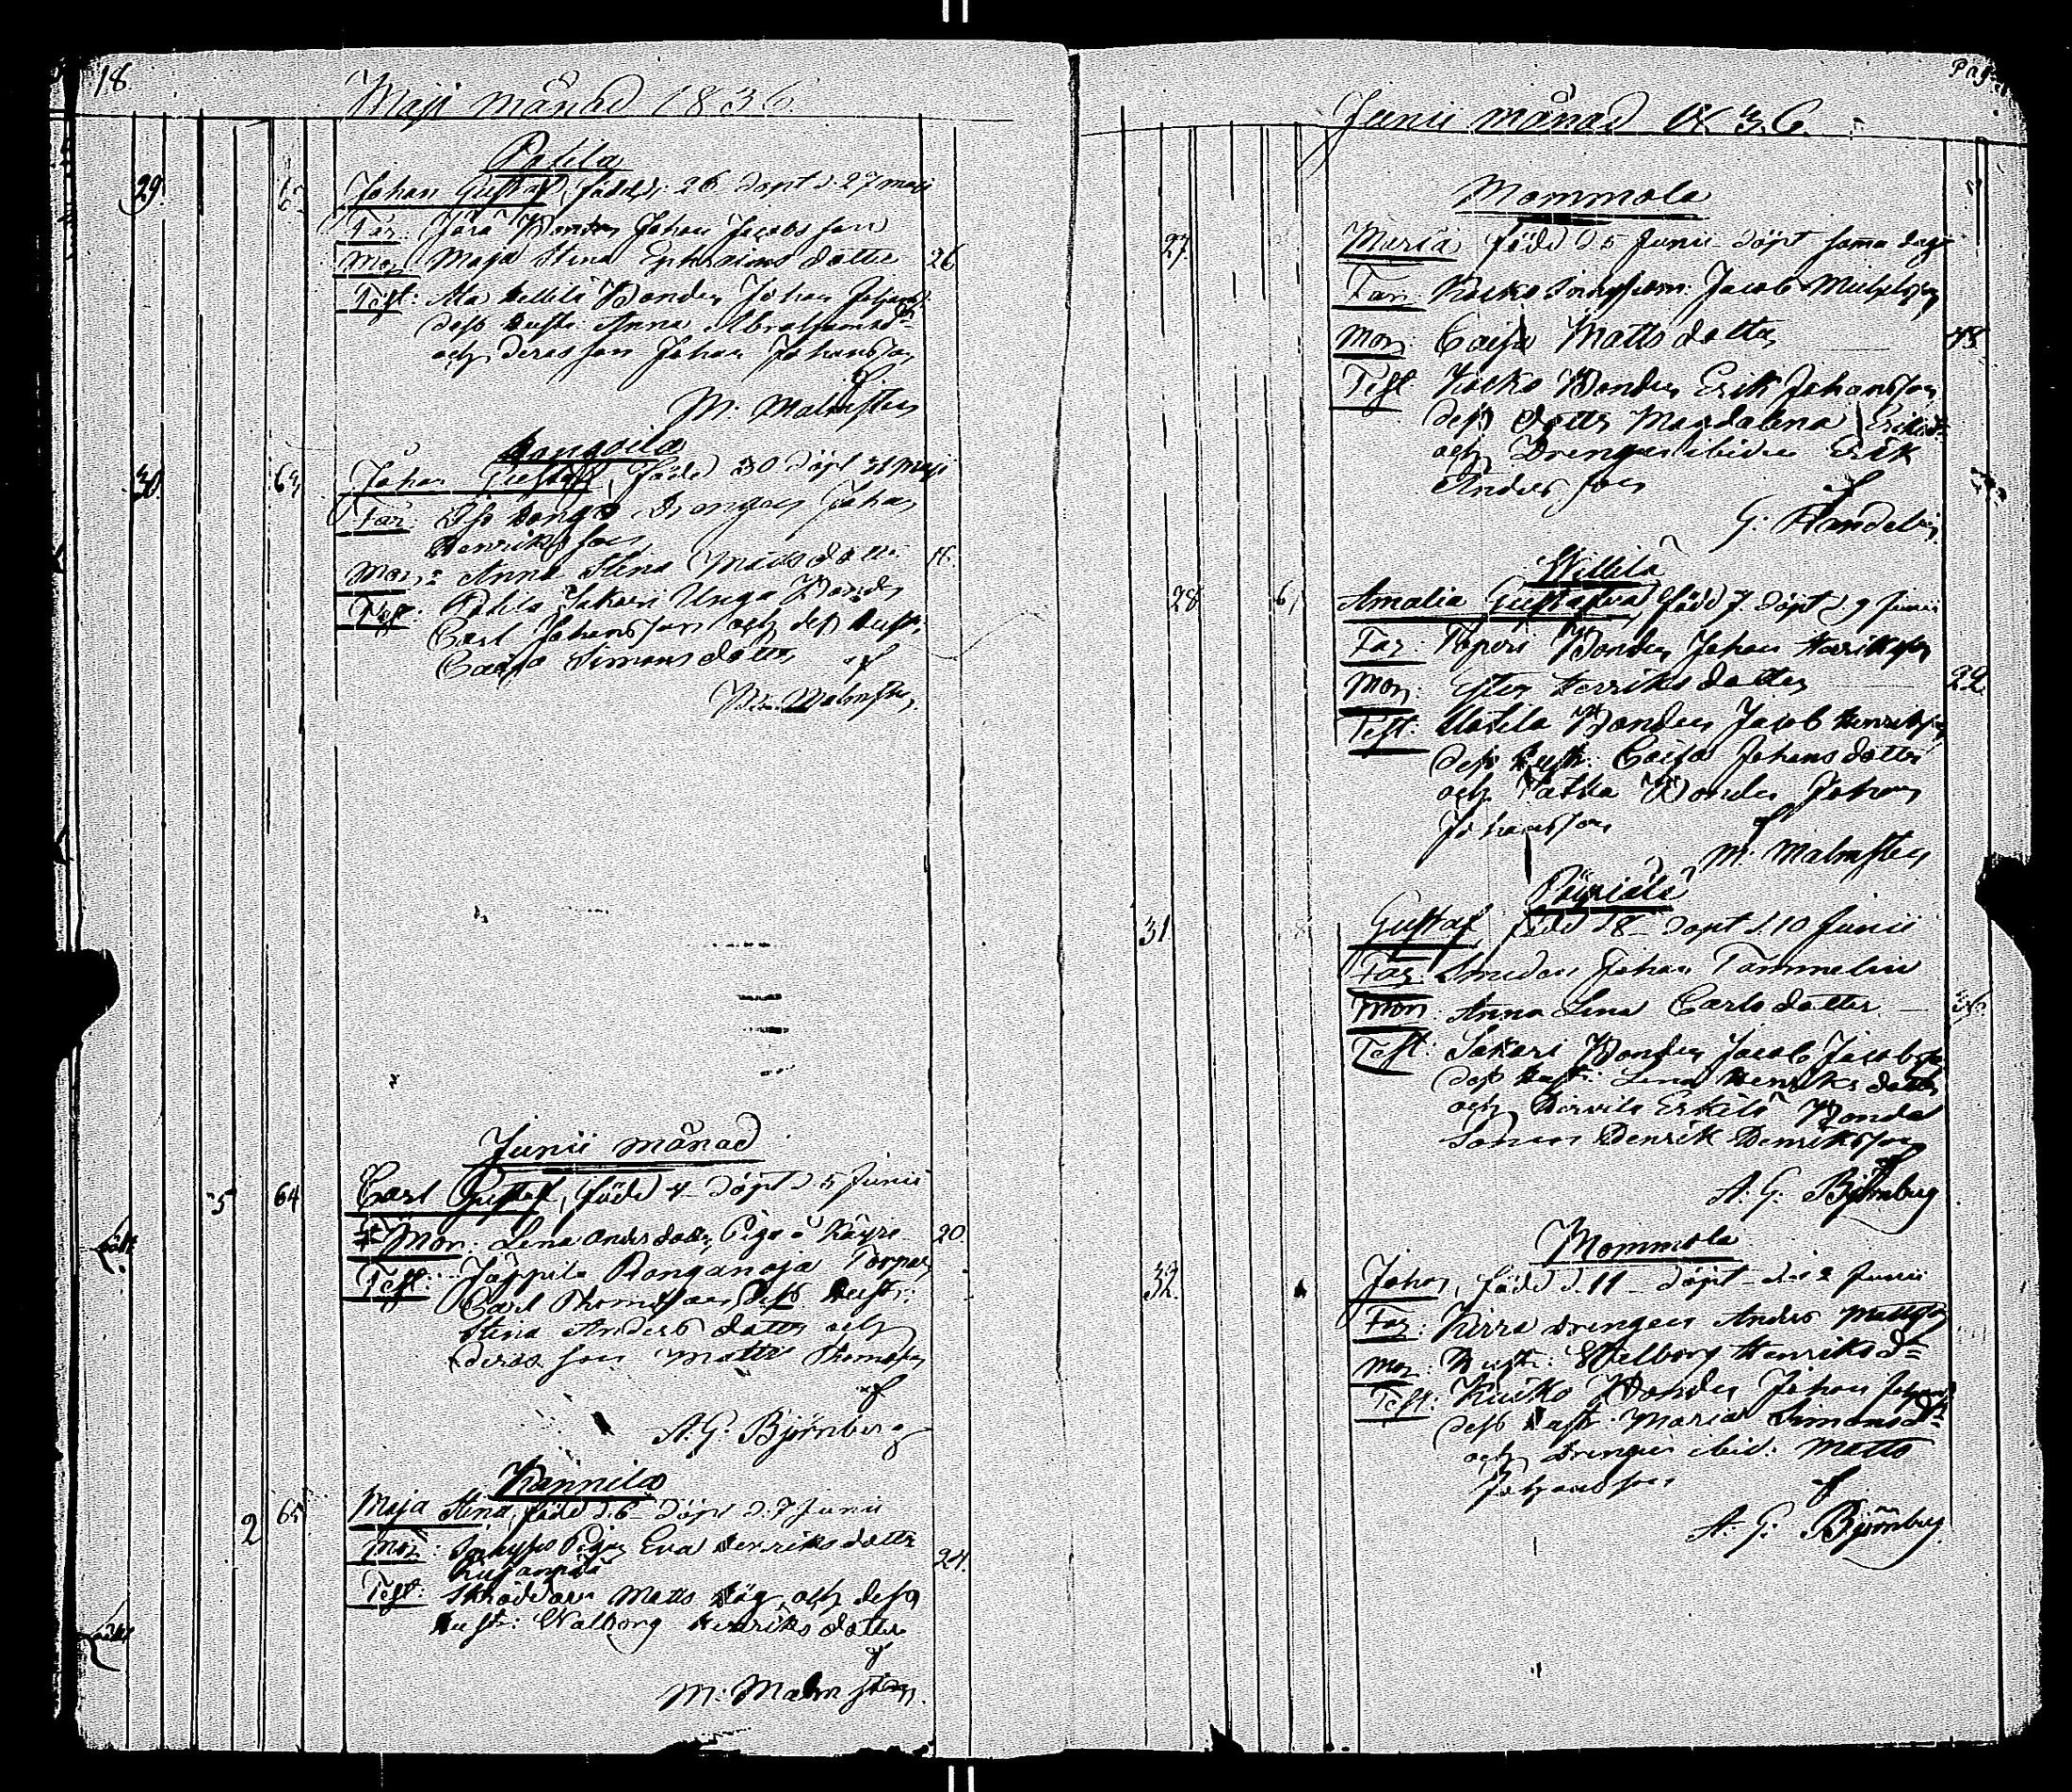 18.
Maji månad 1836.
29.
Johan Gustaf, född d. 26 döpt d. 27 maji
Far: Bonden Johan Jacobsson
Mor: Maja Stina Ephraims dotter 26
Test: Bonden Johan
dess hustr: Anna Abrahamsd:
och deras son Johan Johansson
af
M: Malmsten
30. 63
Johan Gustaf, född 30 döpt 31 Maji
Far: Drengen Johan
Henriksson
Mor: Anna Stina Matts dotter
Test: Sakari Unga Bonden
Carl Johansson och dess hustr:
Caisa Simons dotter af
M: Malmsten
Junii månad
5 64
Carl Gustaf, född 4 döpt d 5 Junii
Mor: Lena Anders dotter Piga 20
Test: Jäppilä Ronganoja Torpar
Carl Thomasson, dess hustr:
Stina Anders dotter och
deras son Matts Thomasson
af
A: G: Björnberg
Kannila
2 65
Maja Stina, född d. 6 döpt d. 7 Junii
Mor: Pigan Eva Henriks dotter 24.
Test: Skräddaren Matts och dess
hustr: Walborg Henriks dotter
af
M: Malmsten
Pag:
Junii månad 1836.
Mommola
27.
Maria född d 5 Junii döpt samma dag
Far: Jacob Michelsson
Mor: Caisa Matts dotter
Test Bonden Erik Johansson
dess dotter Magdalena Eriksd:
och Drengen ibidem Erik
Andersson
af
G: Randelin
Willilä
28 6
Amalia Gustafva född 7 döpt d 9 Junii
Far: Bonden Johan Henriksson
Mor: Ester Henriks dotter 22.
Test: Bonden Jacob Henriksson
dess hustr: Caisa Johans dotter
och Bonden Johan
Johansson af
M: Malmsten
31
Gustaf, född d 8 döpt d. 10 Junii
Far: Smeden Johan Tammelin
Mor: Anna Lena Carls dotter 36
Test: Sakari Bonden Jacob Jacobsson
dess hustr: Lena Henriks dotter
och Erkilä Bonde
Sonen Henrik Henriksson
af
A: G: Björnberg
Mommola
32.
Johan, född d. 11 döpt d. 12 Junii
Far: Drengen Anders Mattsson
Mor: Hustr: Walborg Henriksd:
Test: Bonden Johan
dess hustr: Maria Simonsd:
och Drengen ibid: Matts
Johansson
af
A: G: Björnberg